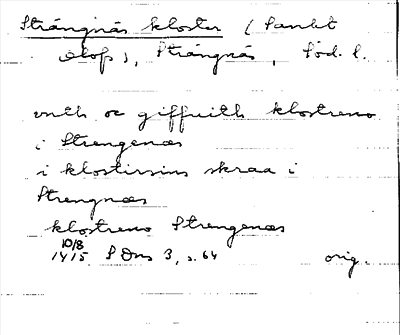 Strängnäs kloster (Sankt
Olofs), Strängnäs, Söd. l.
vnth oc giffuith klostreno
i Strengenæs
i klostirsins skraa i
Strengnæs
klostreno Strengenæs
10/8
1415 SDns 3, s. 64 orig.